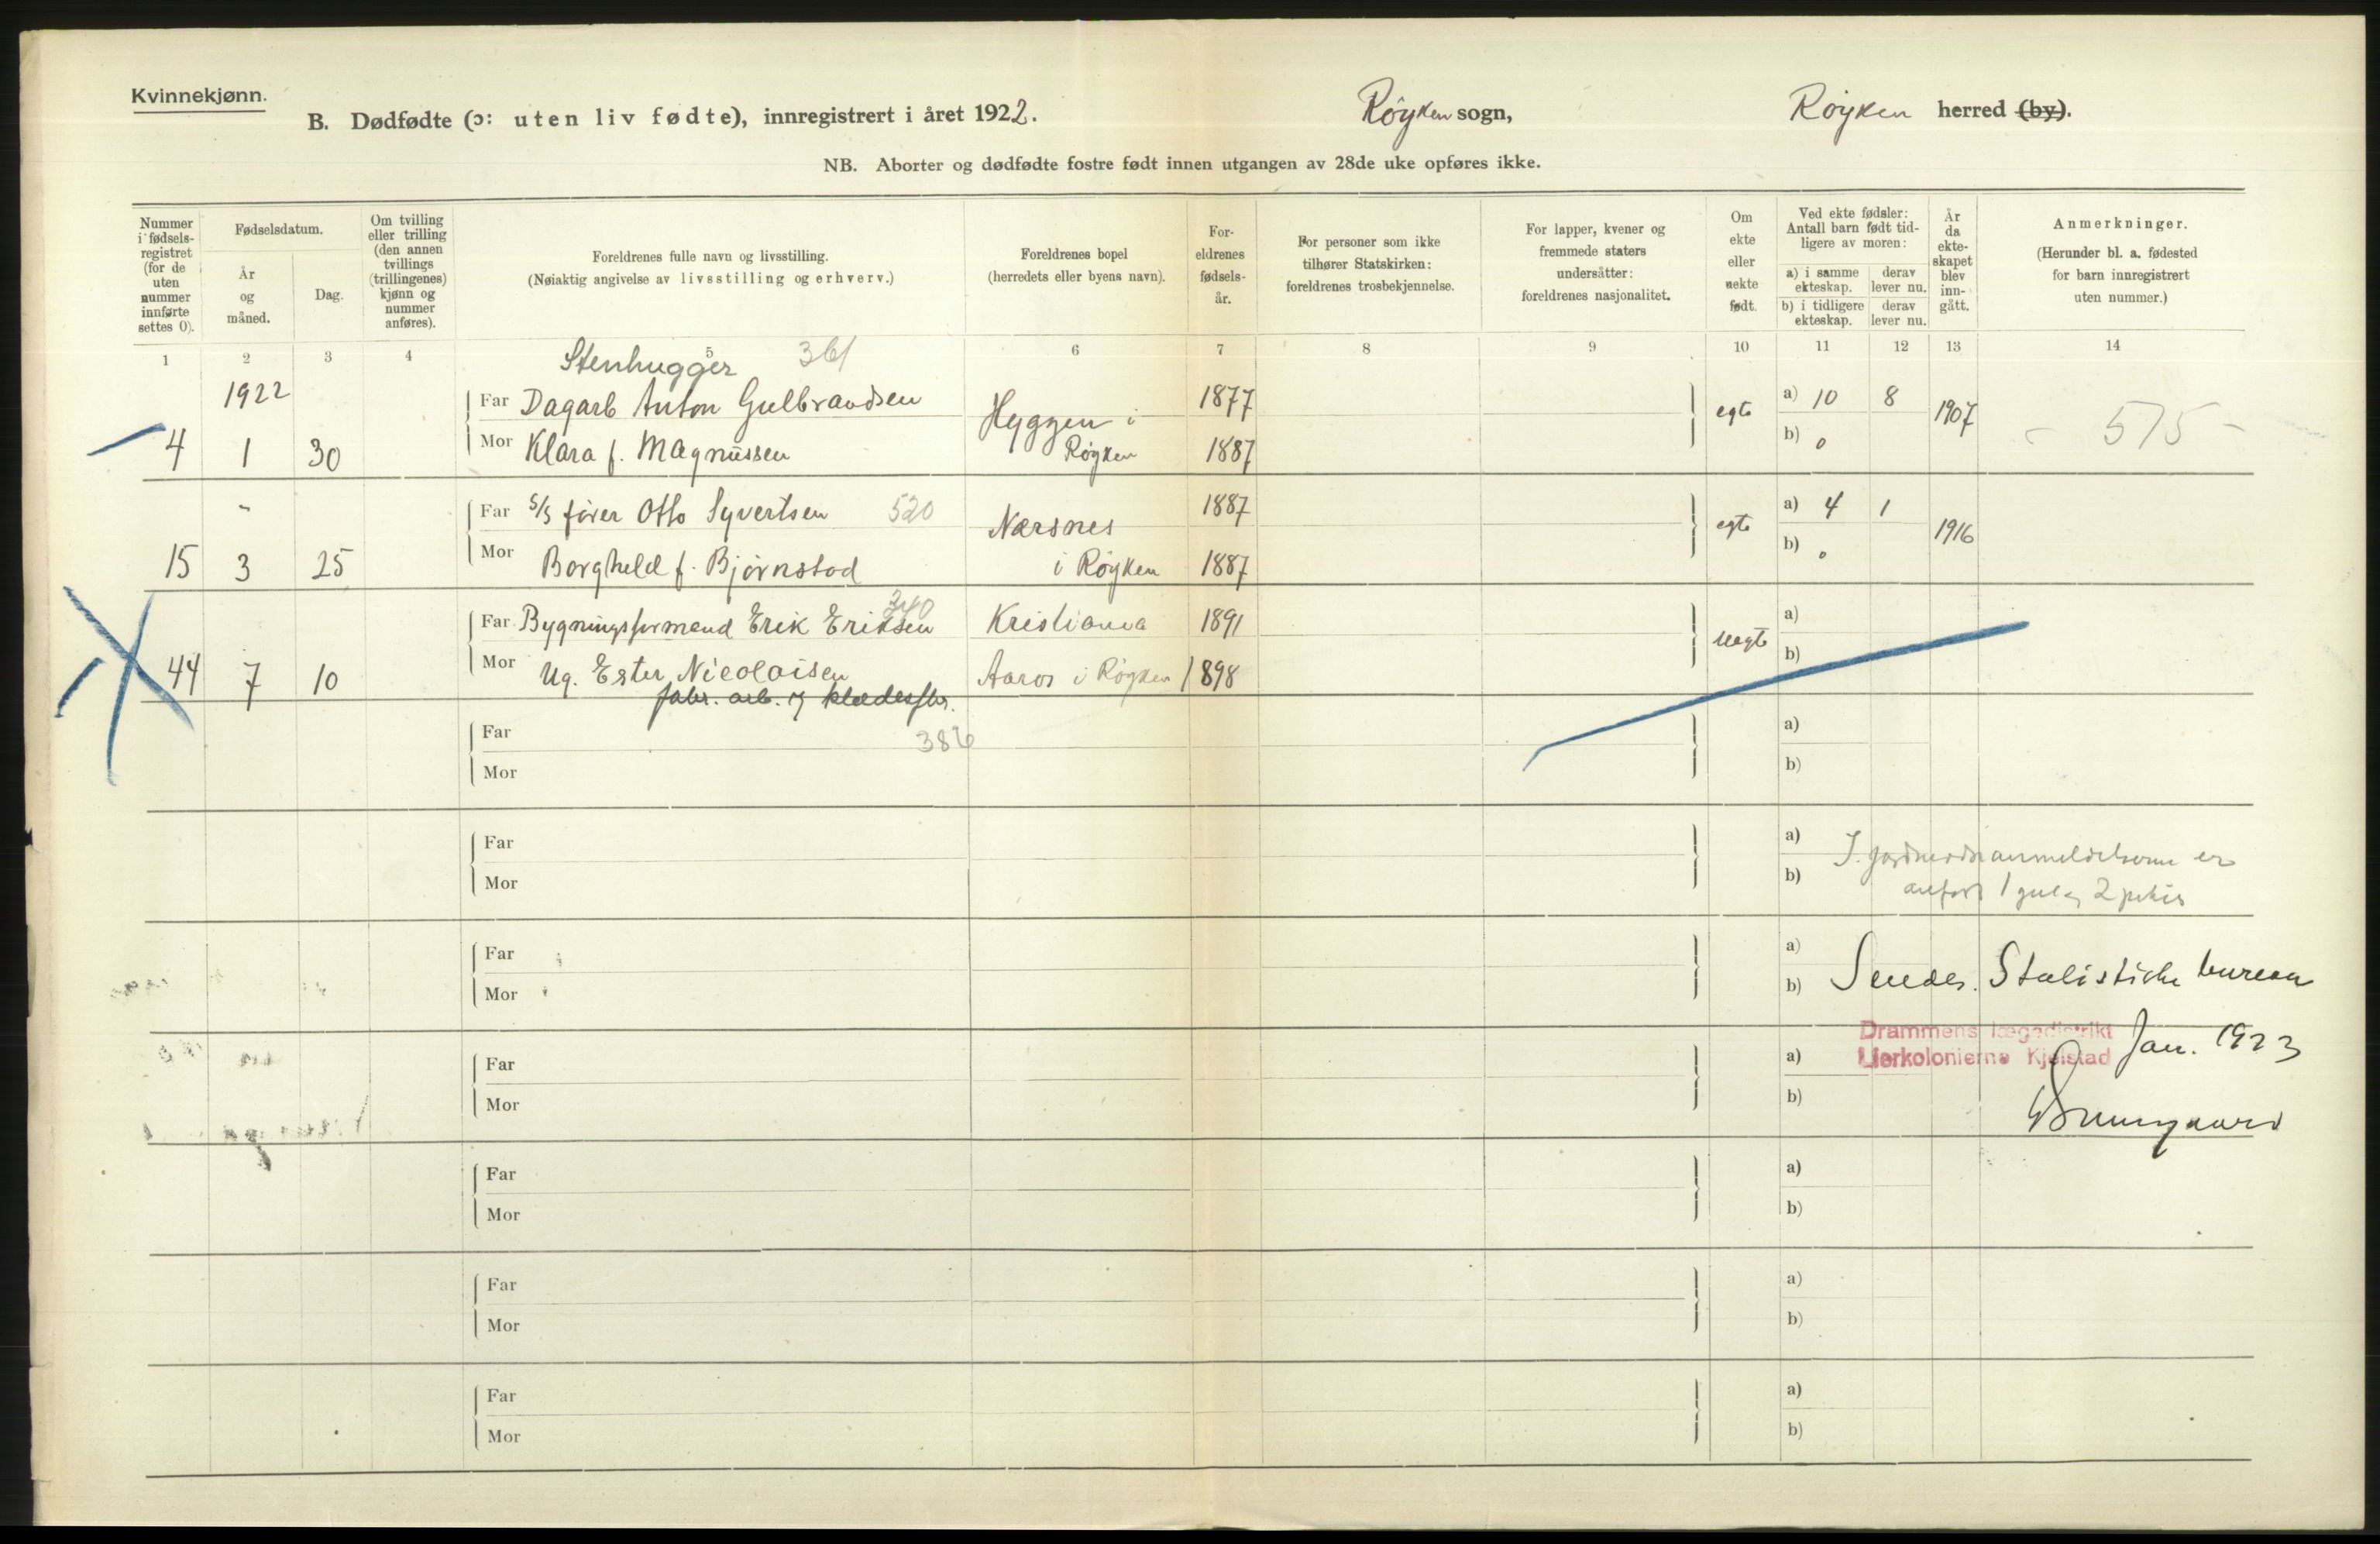 Kvinnekjønn.
B. Dødfødte (ɔ: uten liv fødte), innregistrert i året 1922.
Røyken sogn,
Røyken herred (by).
NB. Aborter og dødfødte fostre født innen utgangen av 28de uke opføres ikke.
Nummer i fødselsregistret (for de uten nummer innførte settes 0).
Fødselsdatum.
År og måned.
Dag.
Om tvilling eller trilling (den annen tvillings (trillingenes) kjønn og nummer anføres).
Foreldrenes fulle navn og livsstilling.
(Nøiaktig angivelse av livsstilling og erhverv.)
Foreldrenes bopel
(herredets eller byens navn).
Foreldrenes fødselsår.
For personer som ikke tilhører Statskirken: foreldrenes trosbekjennelse.
For lapper, kvener og fremmede staters undersåtter: foreldrenes nasjonalitet.
Om ekte eller uekte født.
Ved ekte fødsler: Antall barn født tidligere av moren:
a) i samme ekteskap. derav lever nu.
b) i tidligere ekteskap. derav lever nu.
År da ekteskapet blev inngått.
Anmerkninger.
(Herunder bl. a. fødested for barn innregistrert uten nummer.)
1 2 3 4 5 6 7 8 9 10 11 12 13 14
Stenhugger 361
1922 Far Dagarb Anton Gulbrandsen 1877 a) 10 8
4 1 30 Mor Klara f. Magnussen Hyggen i Røyken 1887 egte b) 0 1907 - 575 -
Far S/S fører Otto Syvertsen 520 Nærsnes 1887 a) 4 1
15 3 25 Mor Borghild f. Bjørnstad i Røyken 1887 egte b) 0 1916
Far Bygningsformand Erik Eriksen 340 Kristiania 1891 a)
44 7 10 Mor Ug. Ester Nicolaisen Aaros i Røyken 1898 uegte b)
fabr. arb. v klædesfbr.
Far 386 a)
Mor b)
Far a) I. jordmoranmeldelserne er
Mor b) anført 1 gut og 2 piker
Far a)
Mor b) Sendes Statistiske bureau
Drammens lægedistrikt
Lierkolonierne Kjelstad Jan. 1923
Far a)
Mor b)
Far a)
Mor b)
Far a)
Mor b)
Far a)
Mor b)